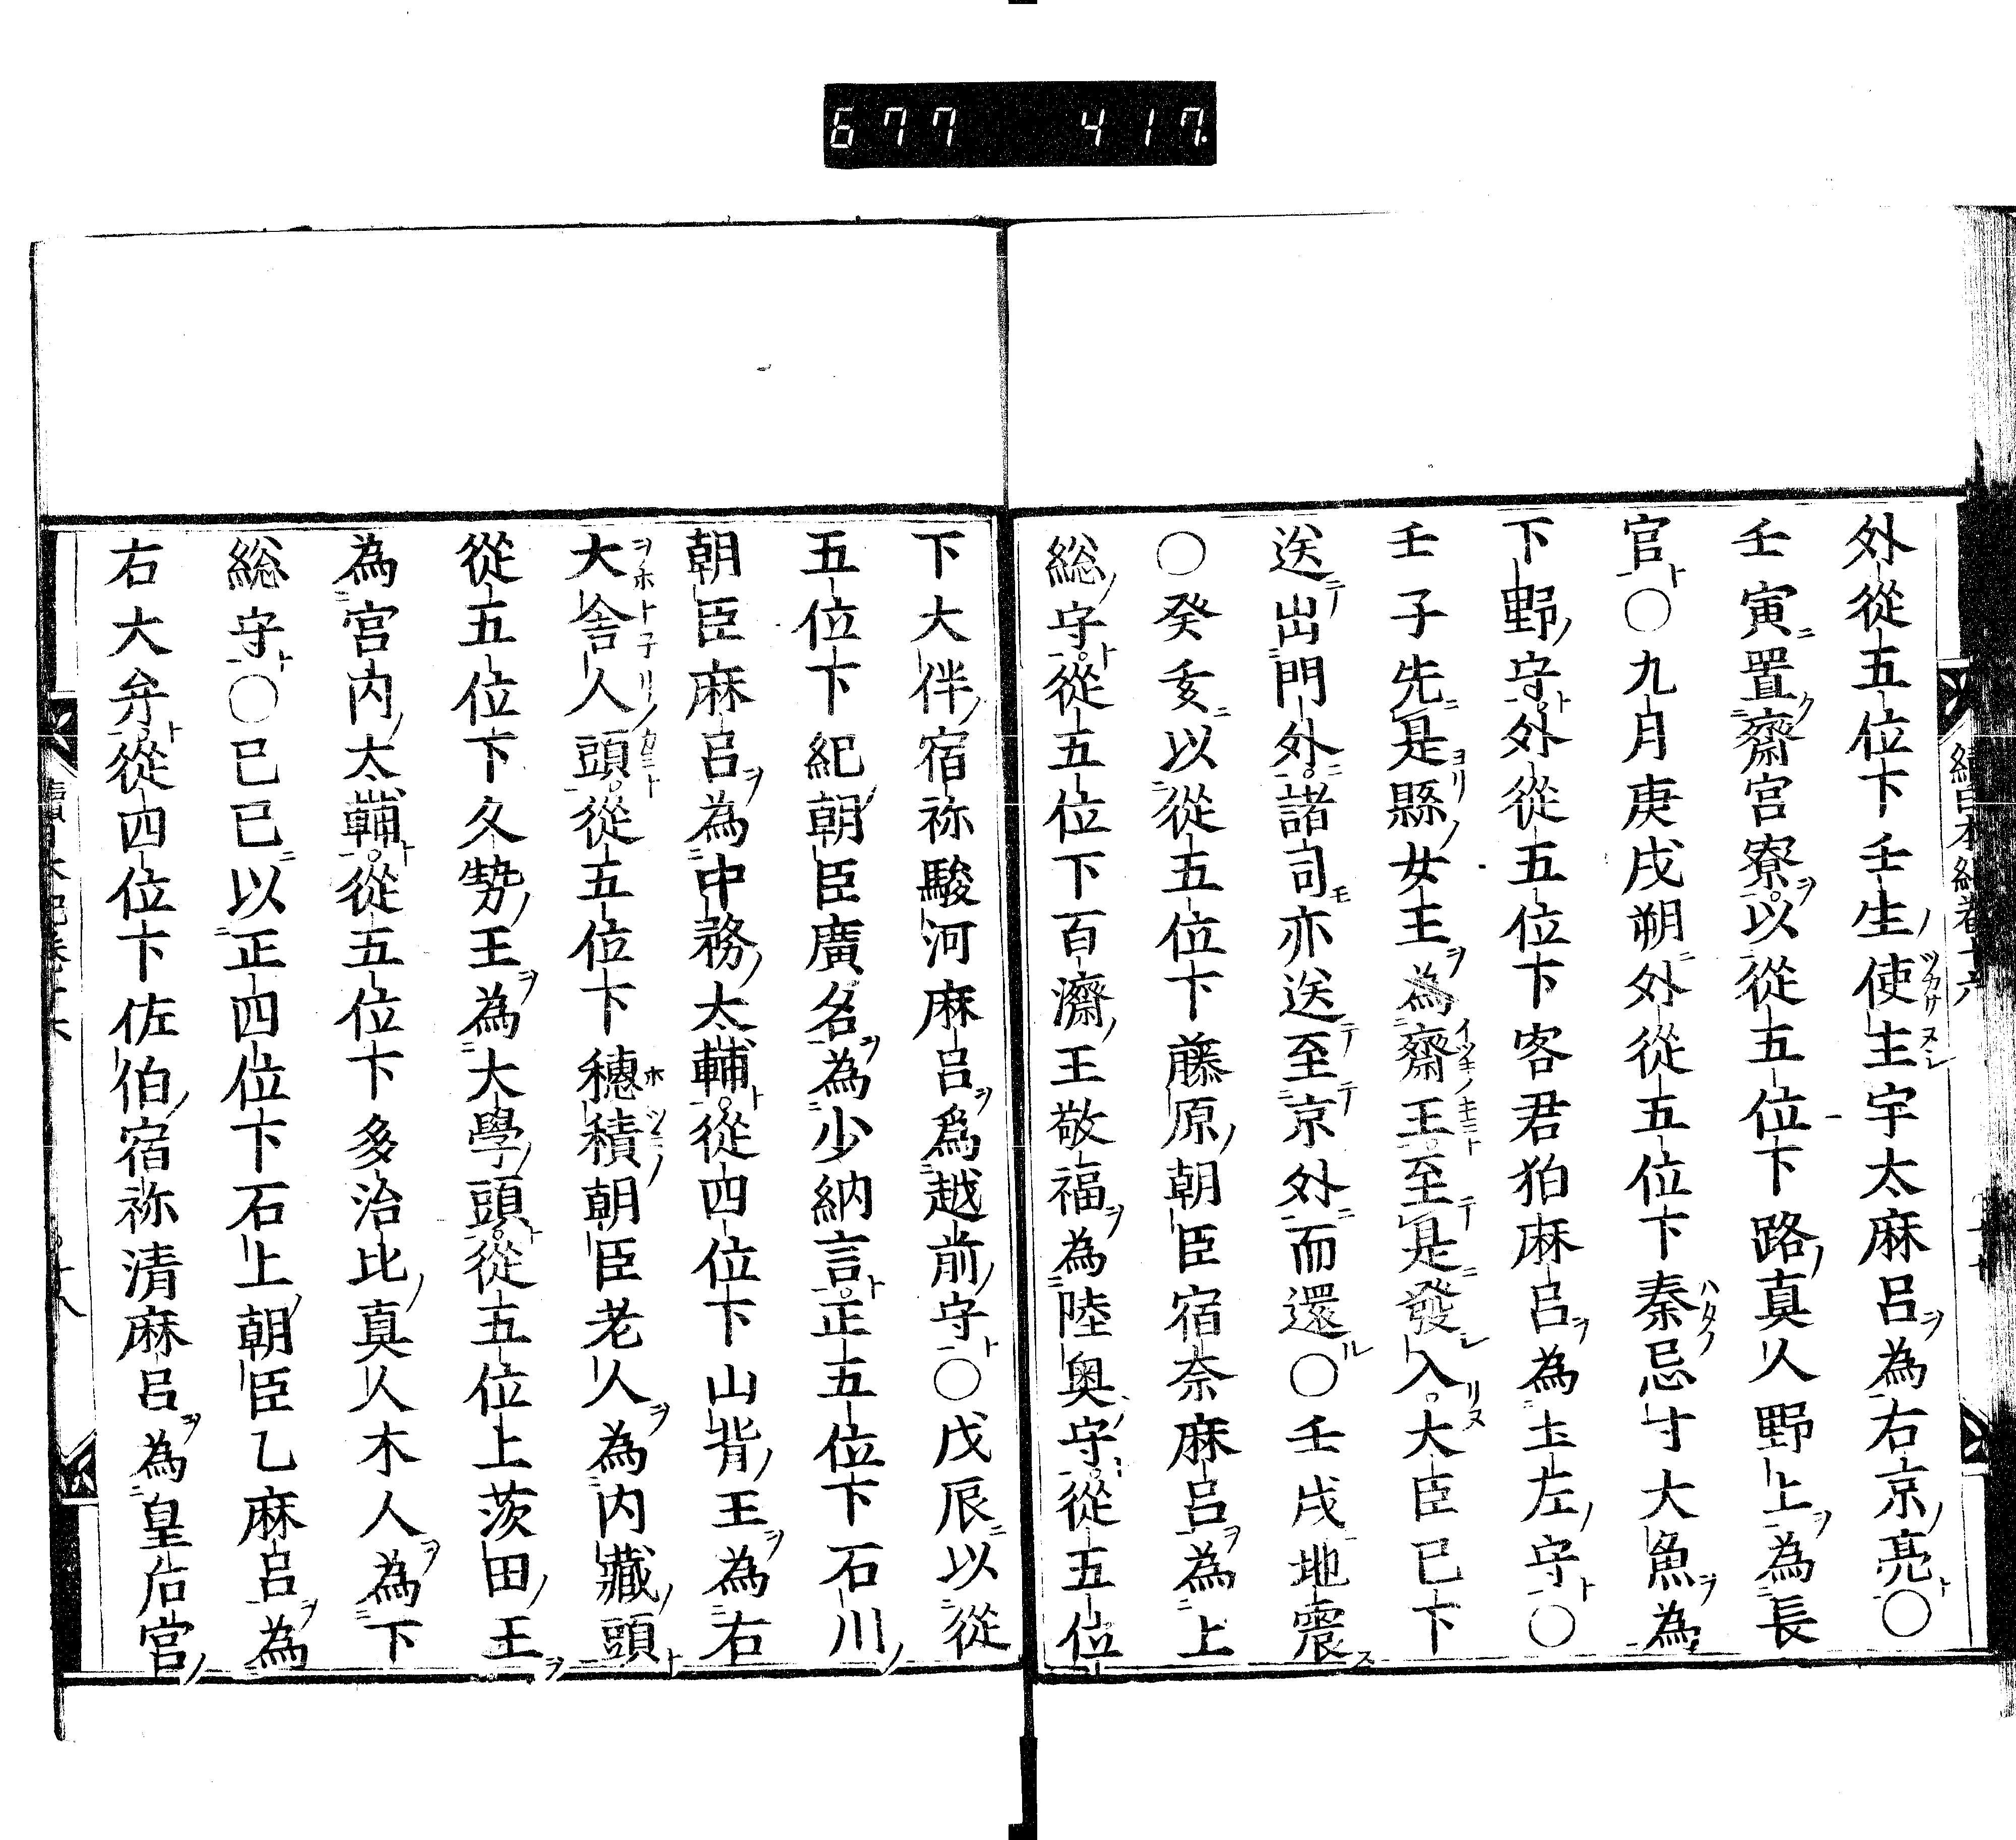 677 417.
外從五位下壬生使主宇太麻呂為右京亮〇
壬寅置齋宮寮以從五位下路真人野上為長
官〇九月庚戌朔外從五位下秦忌寸大魚為
下野守外從五位下客君狛麻呂為土左守〇
壬子先是縣女王為齋王至是發入大臣已下
送出門外諸司亦送至京外而還〇壬戌地震
〇癸亥以從五位下藤原朝臣宿奈麻呂為上
総守從五位下百濟王敬福為陸奥守從五位
下大伴宿祢駿河麻呂爲越前守〇戊辰以從
五位下紀朝臣廣名為少納言正五位下石川
朝臣麻呂為中務太輔從四位下山背王為右
大舎人頭從五位下穗積朝臣老人為内藏頭
從五位下久勢王為大學頭從五位上茨田王
為宮内太輔從五位下多治比真人木人為下
総守〇己巳以正四位下石上朝臣乙麻呂為
右大弁從四位下佐伯宿祢清麻呂為皇后宮